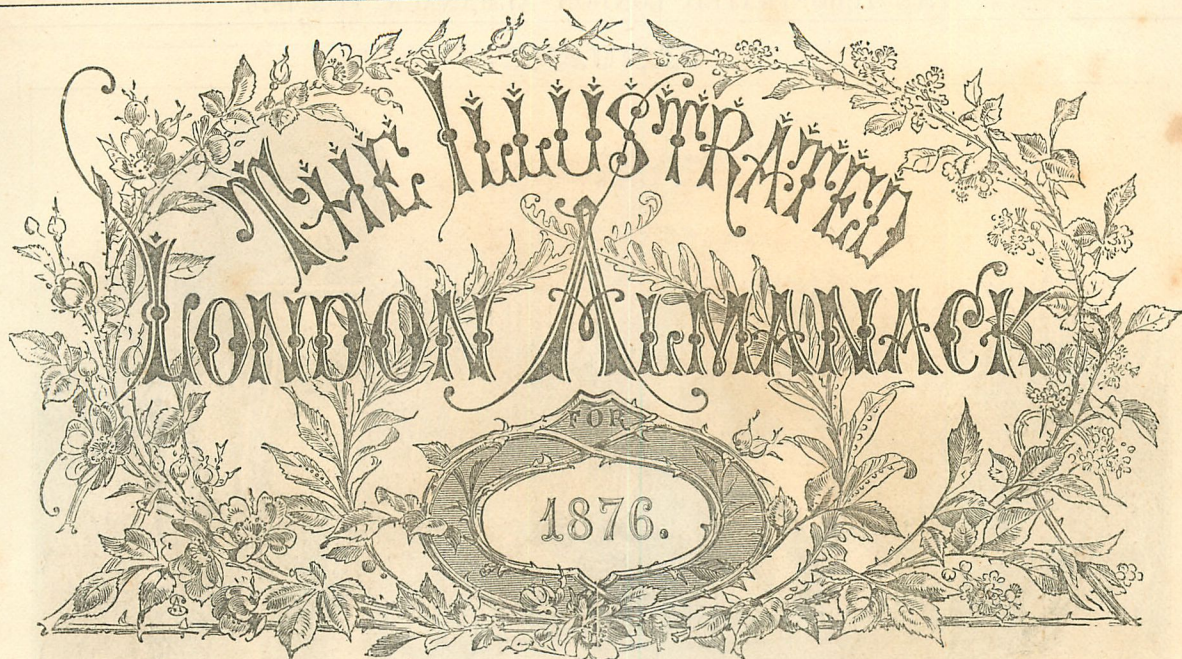 THE ILLUSTRATED
LONDON ALMANACK
FOR
1876.